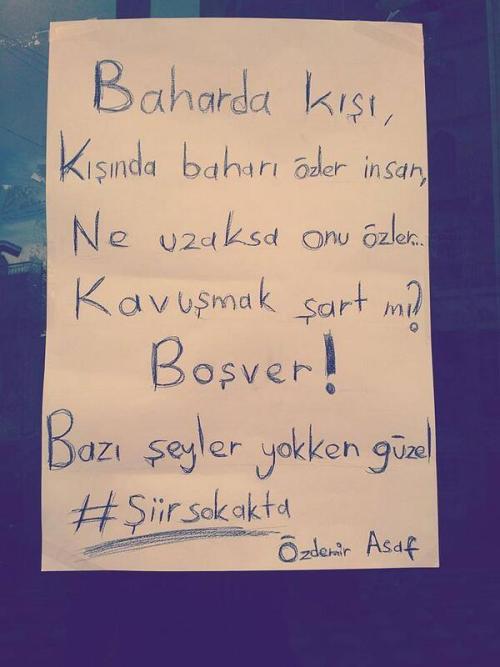 Baharda kışı,
Kışında baharı özler insan,
Ne uzaksa onu özler..
Kavuşmak şart mı?
Boşver!
Bazı şeyler yokken güzel
#Şiirsokakta
Özdemir Asaf